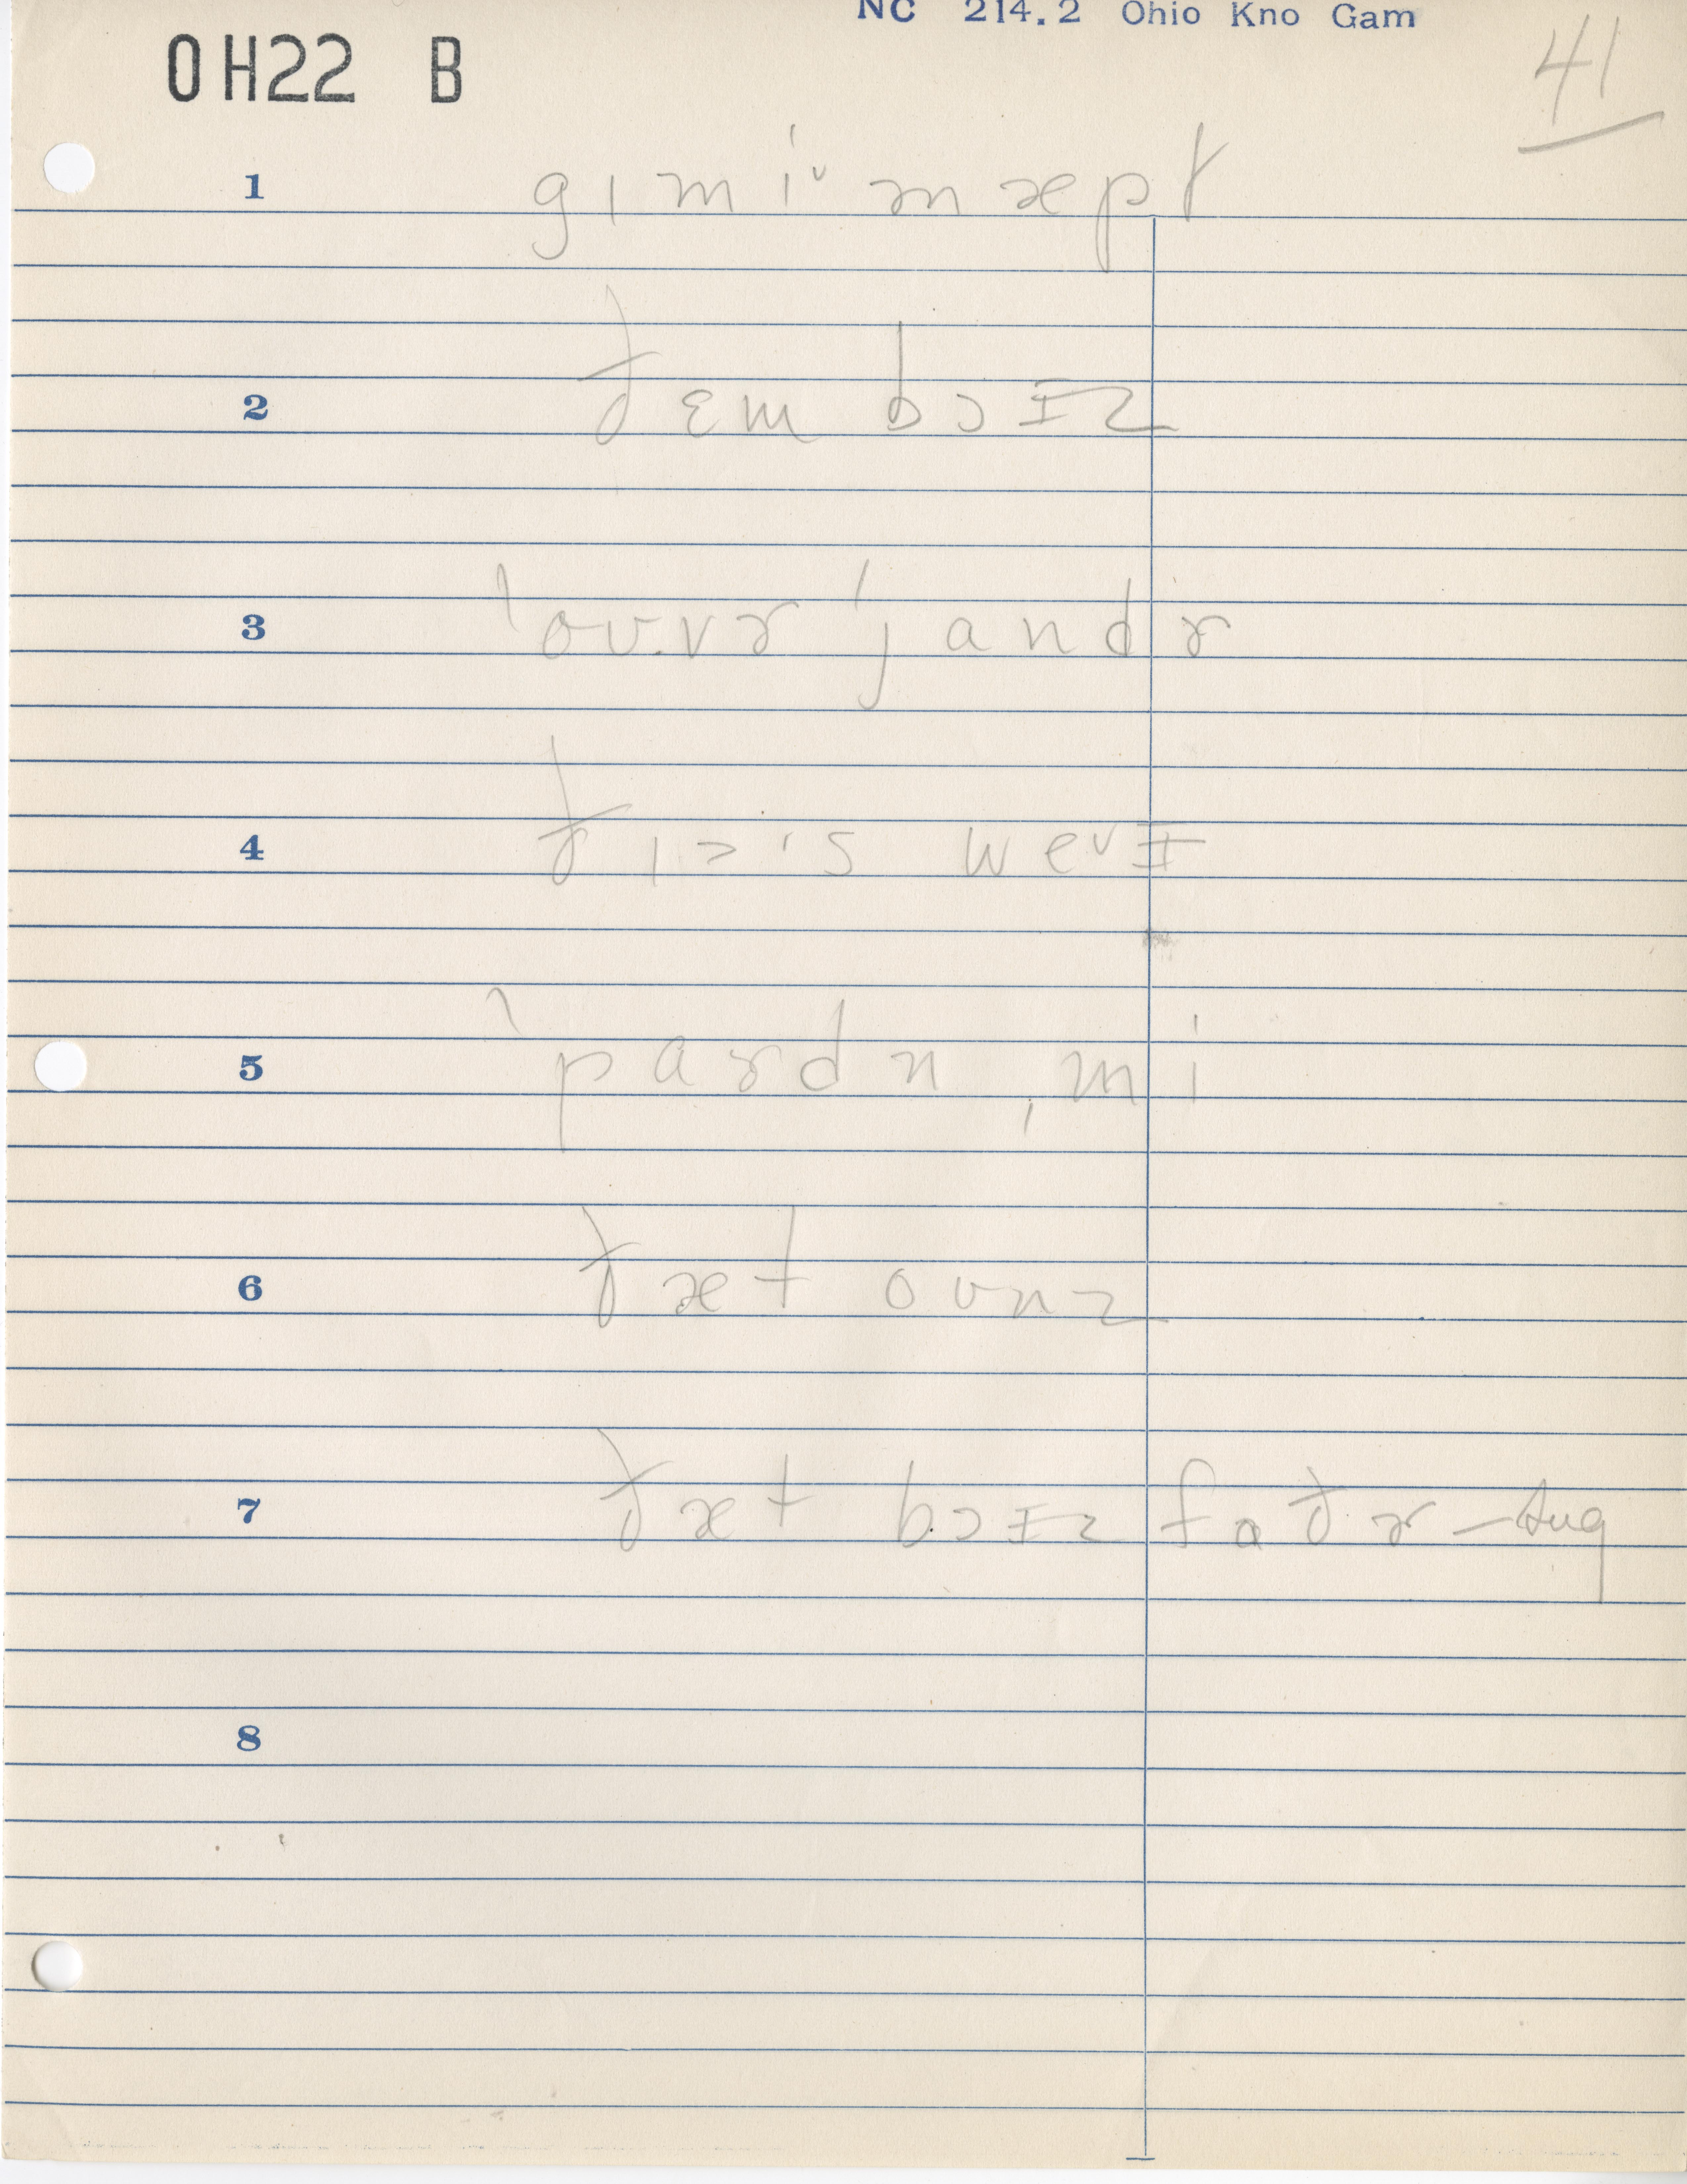 NC 214.2 Ohio Kno Gam
OH22 B
41
1 gɪmiᵛ ən æpɫ
2 ðɛm bɔɪz
3 ˈoʊvɚ ˈjandɚ
4 ðɪs weᵛɪ
5 ˈpɑɚdn ˌmi
6 ðæt oʊnz
7 ðæt bɔɪz faðɚ – sug
8